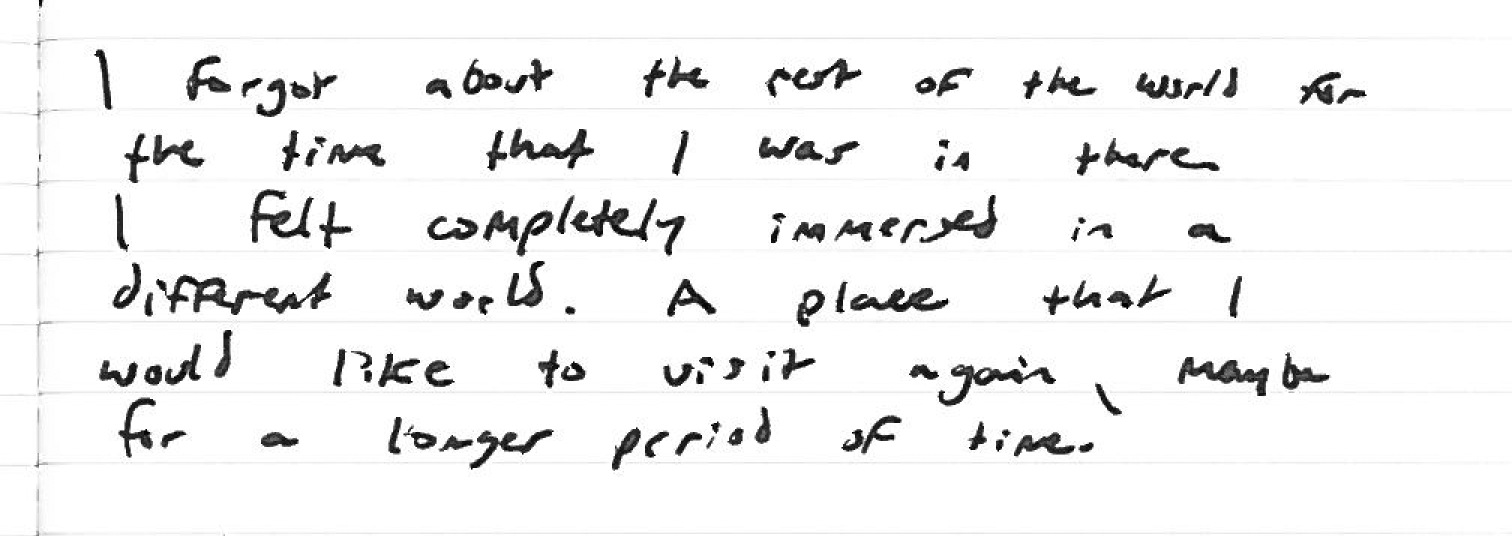 I forgot about the rest of the world for
the time that I was in there
I felt completely immersed in a
different world. A place that I
would like to visit again, maybe
for a longer period of time.